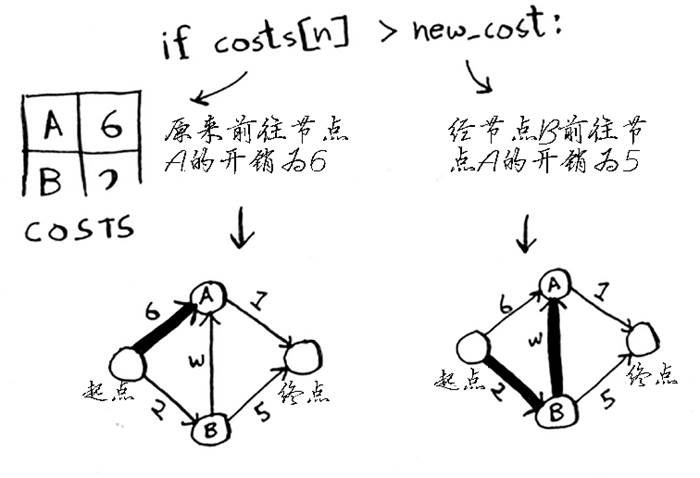 if costs[n] > new_cost:
A 6
B 2
COSTS
原来前往节点
A的开销为6
经节点B前往节
点A的开销为5
6
A
1
W
起点
终点
2
B
5
6
A
1
W
起点
终点
2
B
5